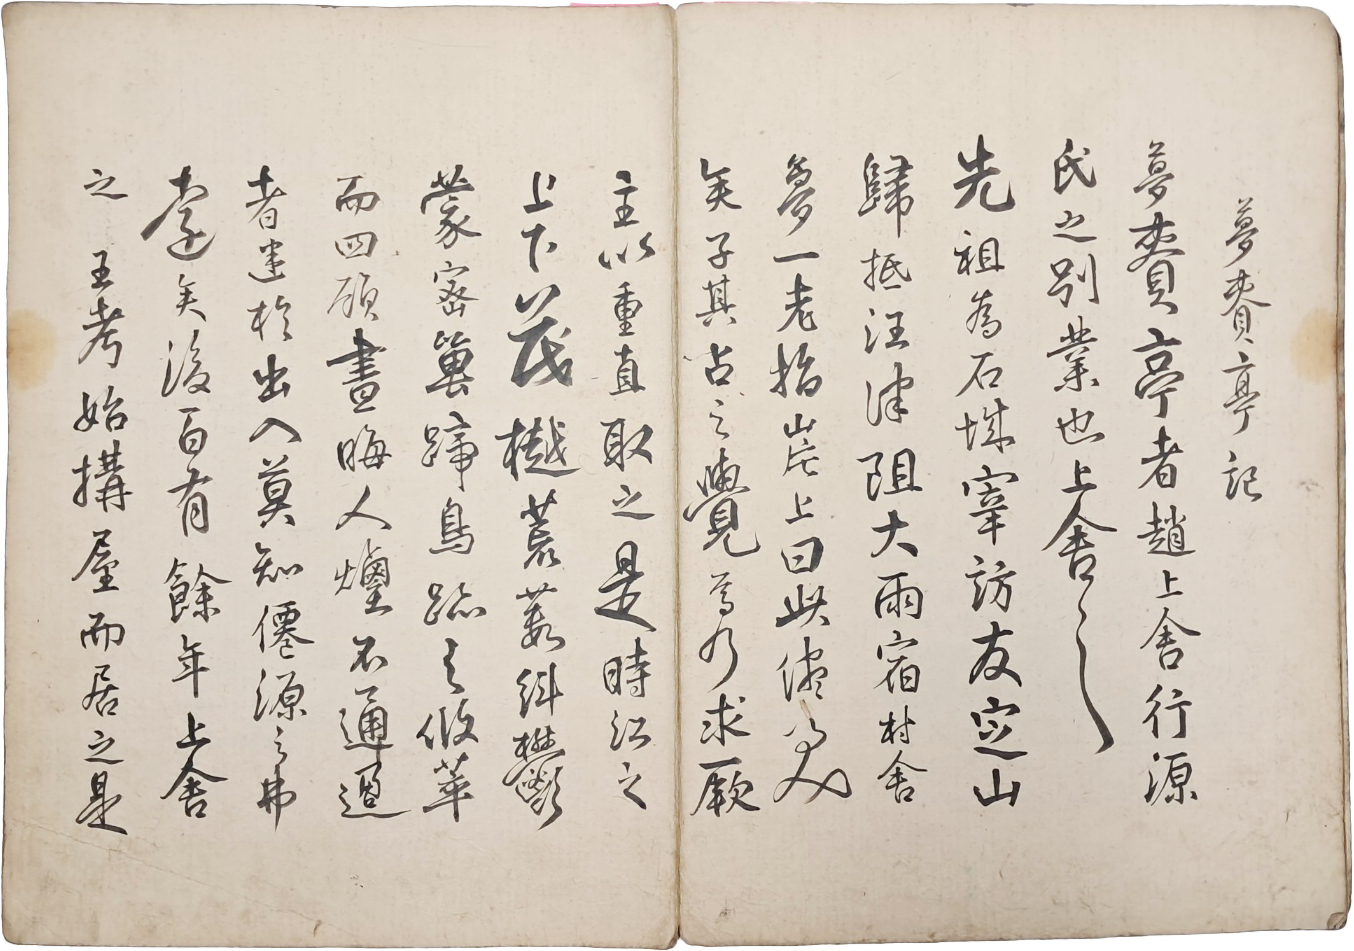 夢賚亭記
夢賚亭者趙上舍行源
氏之別業也上舍之
先祖為石城宰訪友定山
歸抵汪津阻大雨宿村舍
夢一老指山崖上曰此儘可人
矣子其占之覺焉乃求厥
主以重直取之是時江之
上下茂樾荒蓁糾欝
蒙密獸蹄鳥跡之攸萃
而四顧晝晦人煙不通過
者迷於出入莫知僊源之弗
遠矣後百有餘年上舍
之 王考始搆屋而居之是